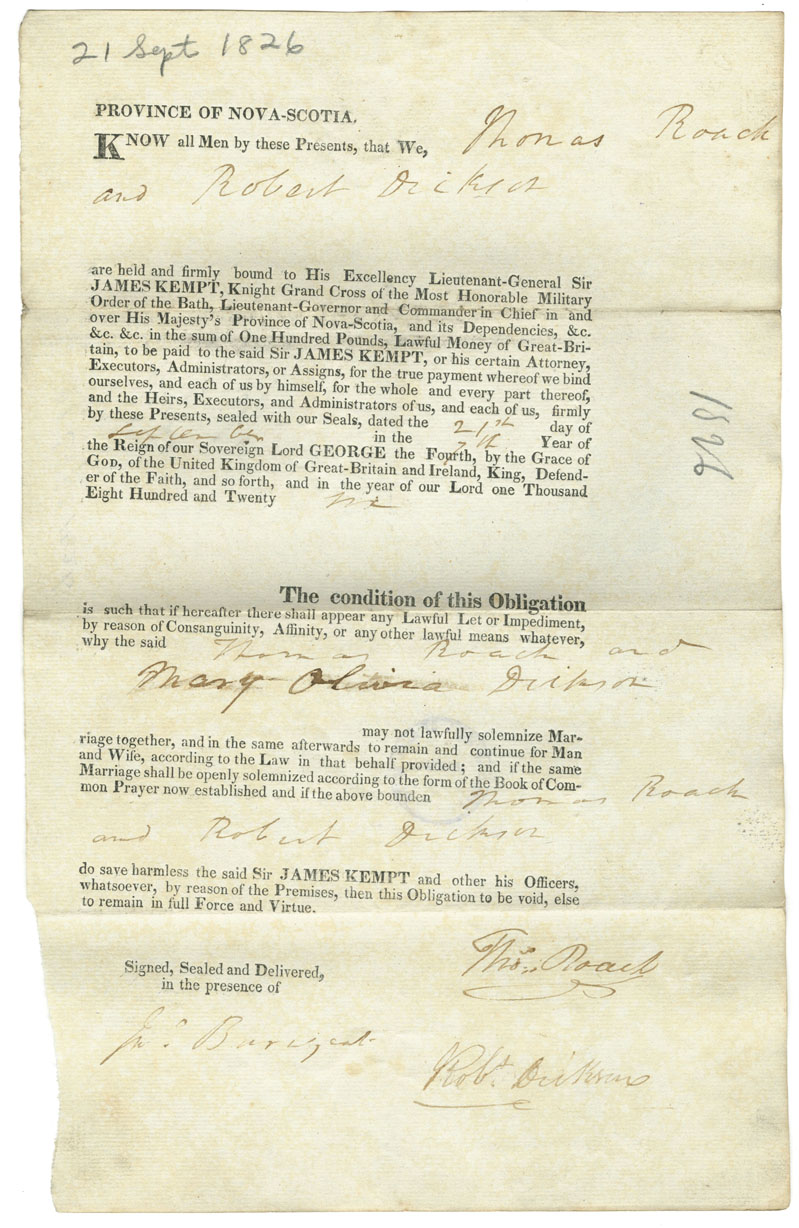 21 Sept 1826
PROVINCE OF NOVA-SCOTIA.
KNOW all Men by these Presents, that We, Thomas Roach
and Robert Dickson
are held and firmly bound to His Excellency Lieutenant-General Sir
JAMES KEMPT, Knight Grand Cross of the Most Honorable Military
Order of the Bath, Lieutenant-Governor and Commander in Chief in and
over His Majesty's Province of Nova-Scotia, and its Dependencies, &c.
&c. &c. in the sum of One Hundred Pounds, Lawful Money of Great-Bri-
tain, to be paid to the said Sir JAMES KEMPT, or his certain Attorney,
Executors, Administrators, or Assigns, for the true payment whereof we bind
ourselves, and each of us by himself, for the whole and every part thereof,
and the Heirs, Executors, and Administrators of us, and each of us, firmly
by these Presents, sealed with our Seals, dated the 21th day of
September in the 7th Year of
the Reign of our Sovereign Lord GEORGE the Fourth, by the Grace of
GOD, of the United Kingdom of Great-Britain and Ireland, King, Defend-
er of the Faith, and so forth, and in the year of our Lord one Thousand
Eight Hundred and Twenty six
1826
The condition of this Obligation
is such that if hereafter there shall appear any Lawful Let or Impediment,
by reason of Consanguinity, Affinity, or any other lawful means whatever,
why the said Thomas Roach and
Mary Olivia Dickson
may not lawfully solemnize Mar-
riage together, and in the same afterwards to remain and continue for Man
and Wife, according to the Law in that behalf provided; and if the same
Marriage shall be openly solemnized according to the form of the Book of Com-
mon Prayer now established and if the above bounden Thomas Roach
and Robert Dickson
do save harmless the said Sir JAMES KEMPT and other his Officers,
whatsoever, by reason of the Premises, then this Obligation to be void, else
to remain in full Force and Virtue.
Signed, Sealed and Delivered,
in the presence of
Thos. Roach
Jno.
Robt. Dickson